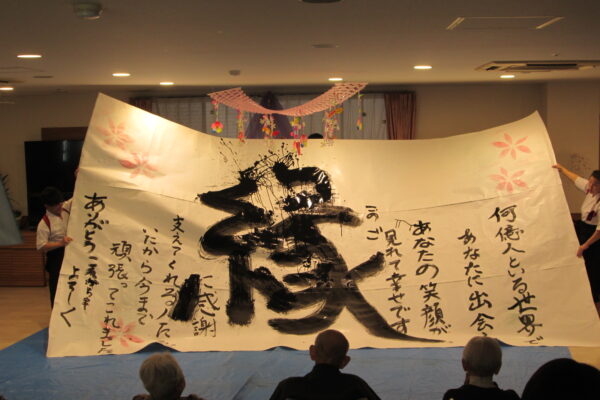 何億人といる世界で
あなたに出会
あなたの笑顔が
見れて幸せです
このご
縁
感謝
支えてくれる人が
いたから今まで
頑張ってこれました
ありがとうこれからも
よろしく